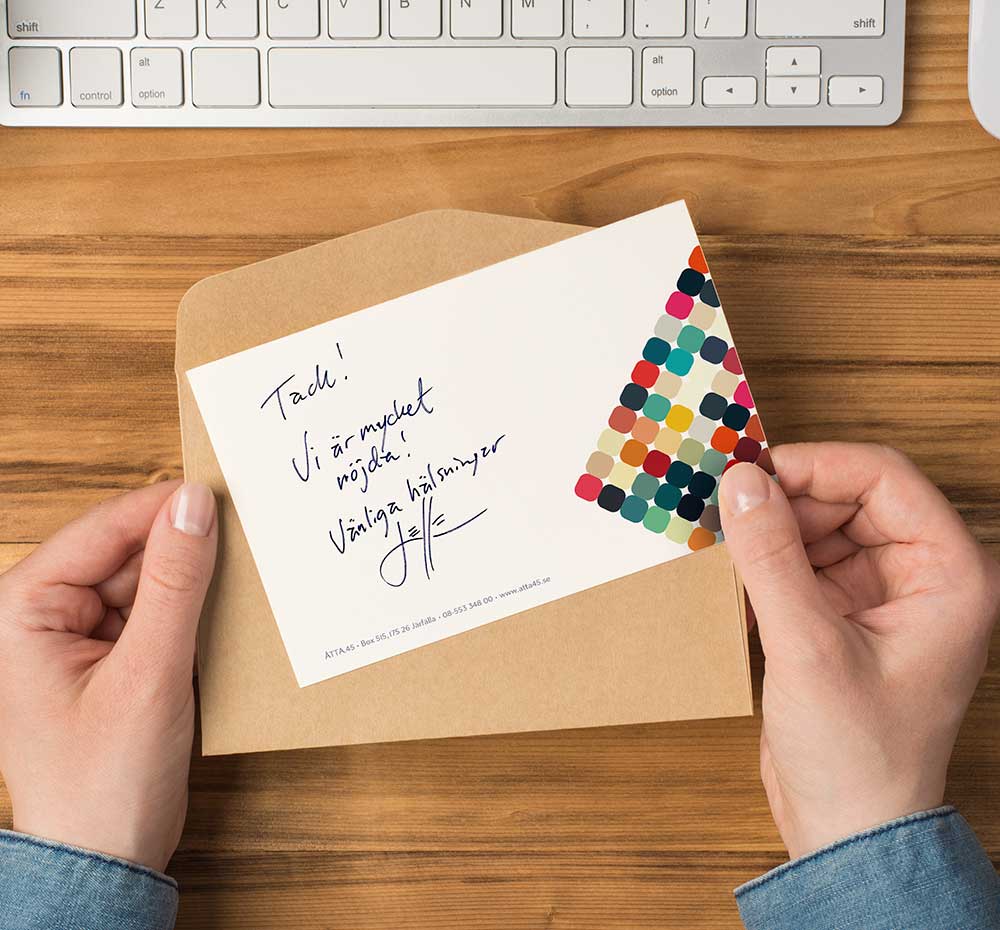 shift Z X C V B N M , . / shift
fn control alt option alt option
Tack!
Vi är mycket
nöjda!
Vänliga hälsningar
ÅTTA.45 • Box 515, 175 26 Järfälla • 08-553 348 00 • www.atta45.se